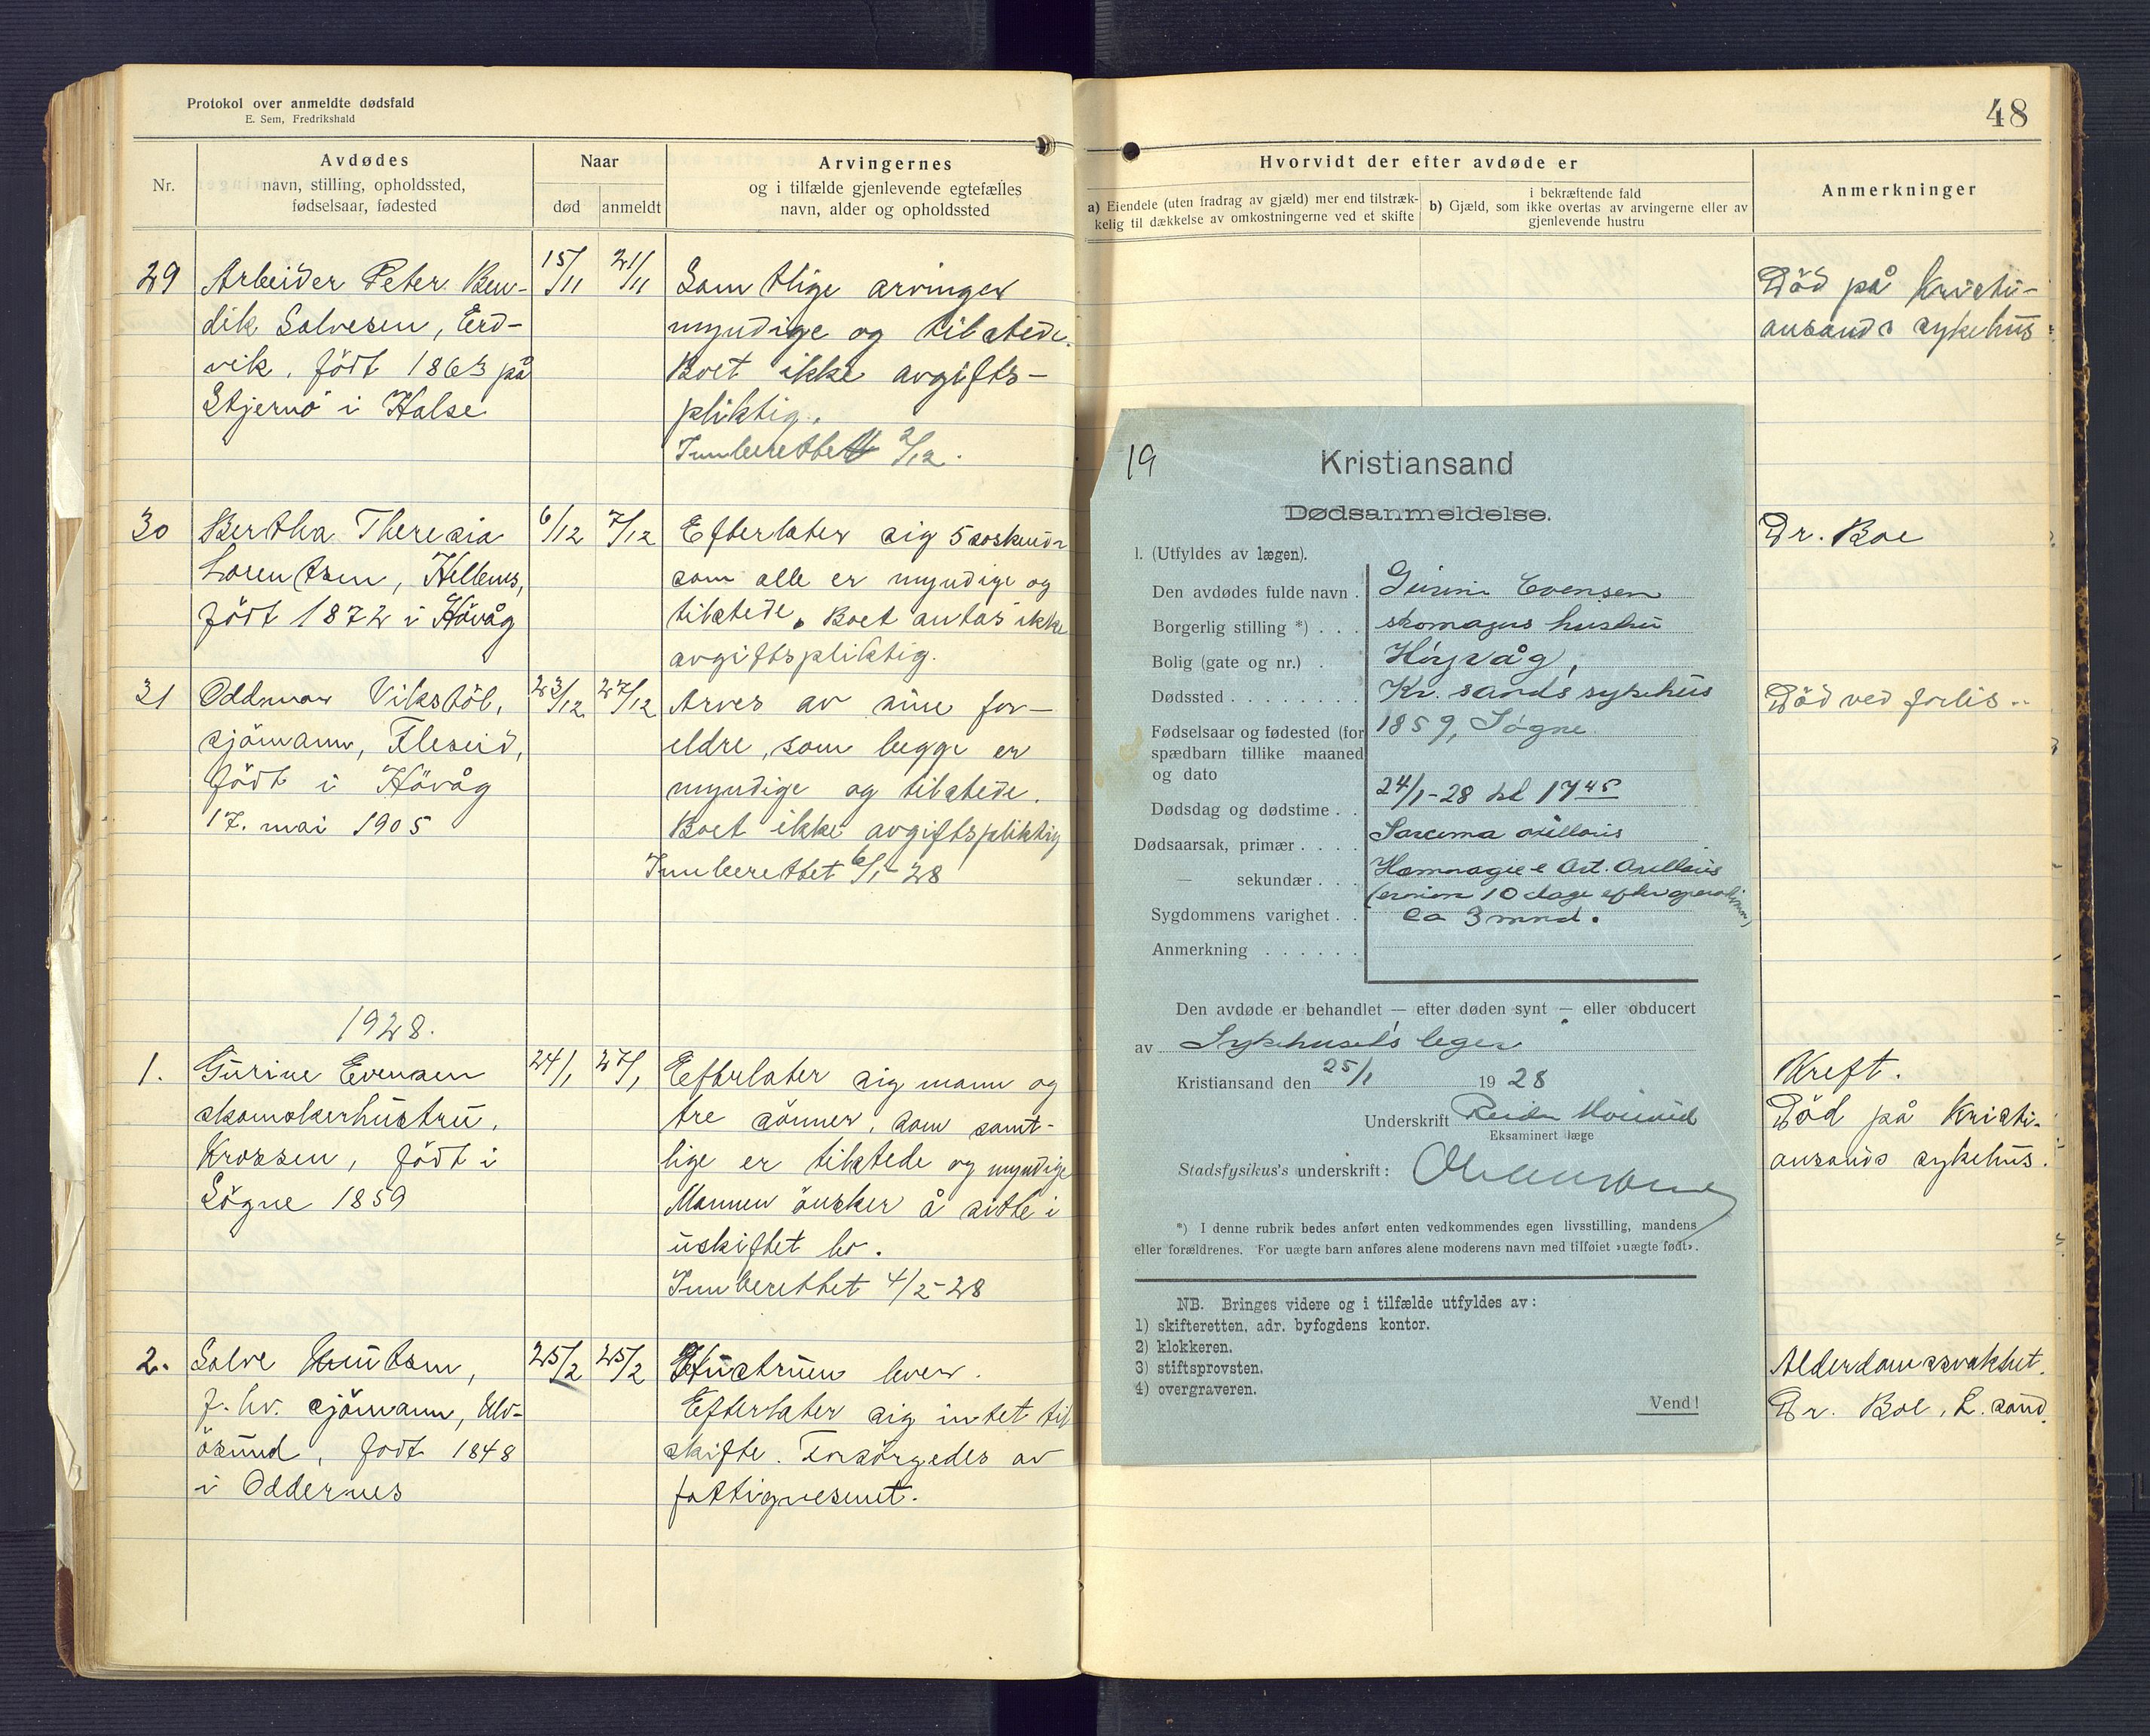 Protokol over anmeldte dødsfald
E. Sem, Fredrikshald
Nr.
Avdødes
navn, stilling, opholdssted,
fødselsaar, fødested
Naar
død
anmeldt
Arvingernes
og i tilfælde gjenlevende egtefælles
navn, alder og opholdssted
29
Arbeider Peter Ben-
dik Salvesen, Erd-
vik, født 1863 på
Stjernø i Halse
15/11
21/11
Samtlige arvinger
myndige og tilstede.
Boet ikke avgifts-
pliktig.
Innberettet 2/12.
30
Bertha Theresia
Lorentsen, Hellenes,
født 1872 i Høvåg
6/12
7/12
Efterlater sig 5 søskende
som alle er myndige og
tilstede. Boet antas ikke
avgiftspliktig.
31
Oddmar Vikstøl,
sjømann,
født i Høvåg
17. mai 1905
23/12
27/12
Arves av sine for-
eldre, som begge er
myndige og tilstede.
Boet ikke avgiftspliktig
Innberettet 6/1-28
1928.
1.
Gurine Evensen
skomakerhustru,
Krossen, født i
Søgne 1859
24/1
27/1
Efterlater sig mann og
tre sønner, som samt-
lige er tilstede og myndige
Mannen ønsker å sitte i
uskiftet bo.
Innberettet 4/2-28
2.
Salve Knutsen,
f. hv. sjømann, Ulv-
øsund, født 1848
i Oddernes
25/2
25/2
Hustruen lever.
Efterlater sig intet til
skifte. Forsørgedes av
fattigvesenet.
48
Hvorvidt der efter avdøde er
a) Eiendele (uten fradrag av gjæld) mer end tilstræk-
kelig til dækkelse av omkostningerne ved et skifte
i bekræftende fald
b) Gjæld, som ikke overtas av arvingerne eller av
gjenlevende hustru
Anmerkninger
Død på Kristi-
ansands sykehus
Dr. Boe
Død ved forlis.
Kreft.
Død på Kristi-
ansands sykehus.
Alderdomssvakhet.
Dr. Boe, L.sand.
19
Kristiansand
Dødsanmeldelse.
I. (Utfyldes av lægen).
Den avdødes fulde navn . Gurine Evensen
Borgerlig stilling *) . . . skomagers hustru
Bolig (gate og nr.) . Høyvåg,
Dødssted . . . . . . . . Kr. sands sykehus
Fødselsaar og fødested (for 1859, Søgne
spædbarn tillike maaned
og dato
Dødsdag og dødstime . . 24/1-28 kl 17 45
Dødsaarsak, primær . . . . Sarcoma axillaris
— sekundær . . . Hæmoragie e Art. Axillaris
10 dage efter operationen)
Sygdommens varighet . . ca 3 mnd.
Anmerkning . . . . . .
Den avdøde er behandlet — efter døden synt — eller obducert
av Sykehusets leger
Kristiansand den 25/1 1928
Underskrift Reidar
Eksaminert læge
Stadsfysikus's underskrift:
*) I denne rubrik bedes anført enten vedkommendes egen livsstilling, mandens
eller forældrenes. For uægte barn anføres alene moderens navn med tilføiet ›uægte født‹.
NB. Bringes videre og i tilfælde utfyldes av:
1) skifteretten, adr. byfogdens kontor.
2) klokkeren.
3) stiftsprovsten.
4) overgraveren.
Vend!